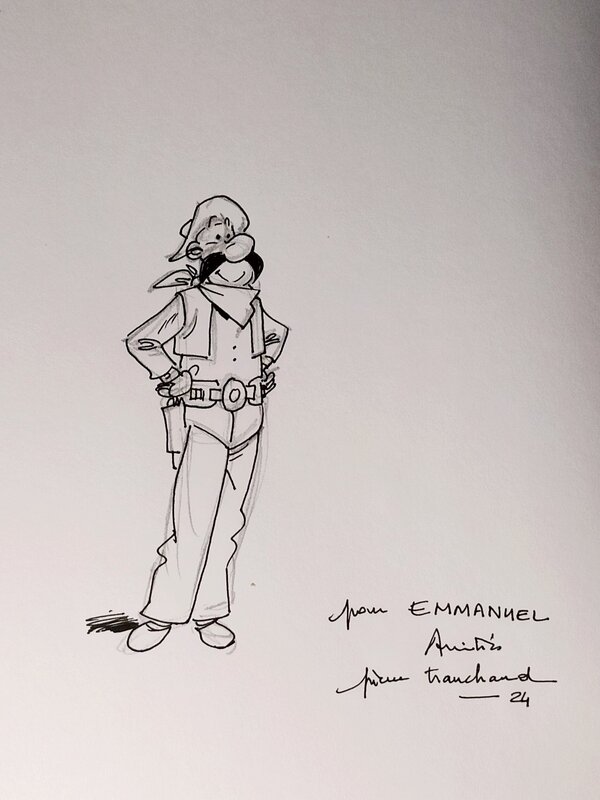 pour EMMANUEL
Amitiés
pierre tranchand
24